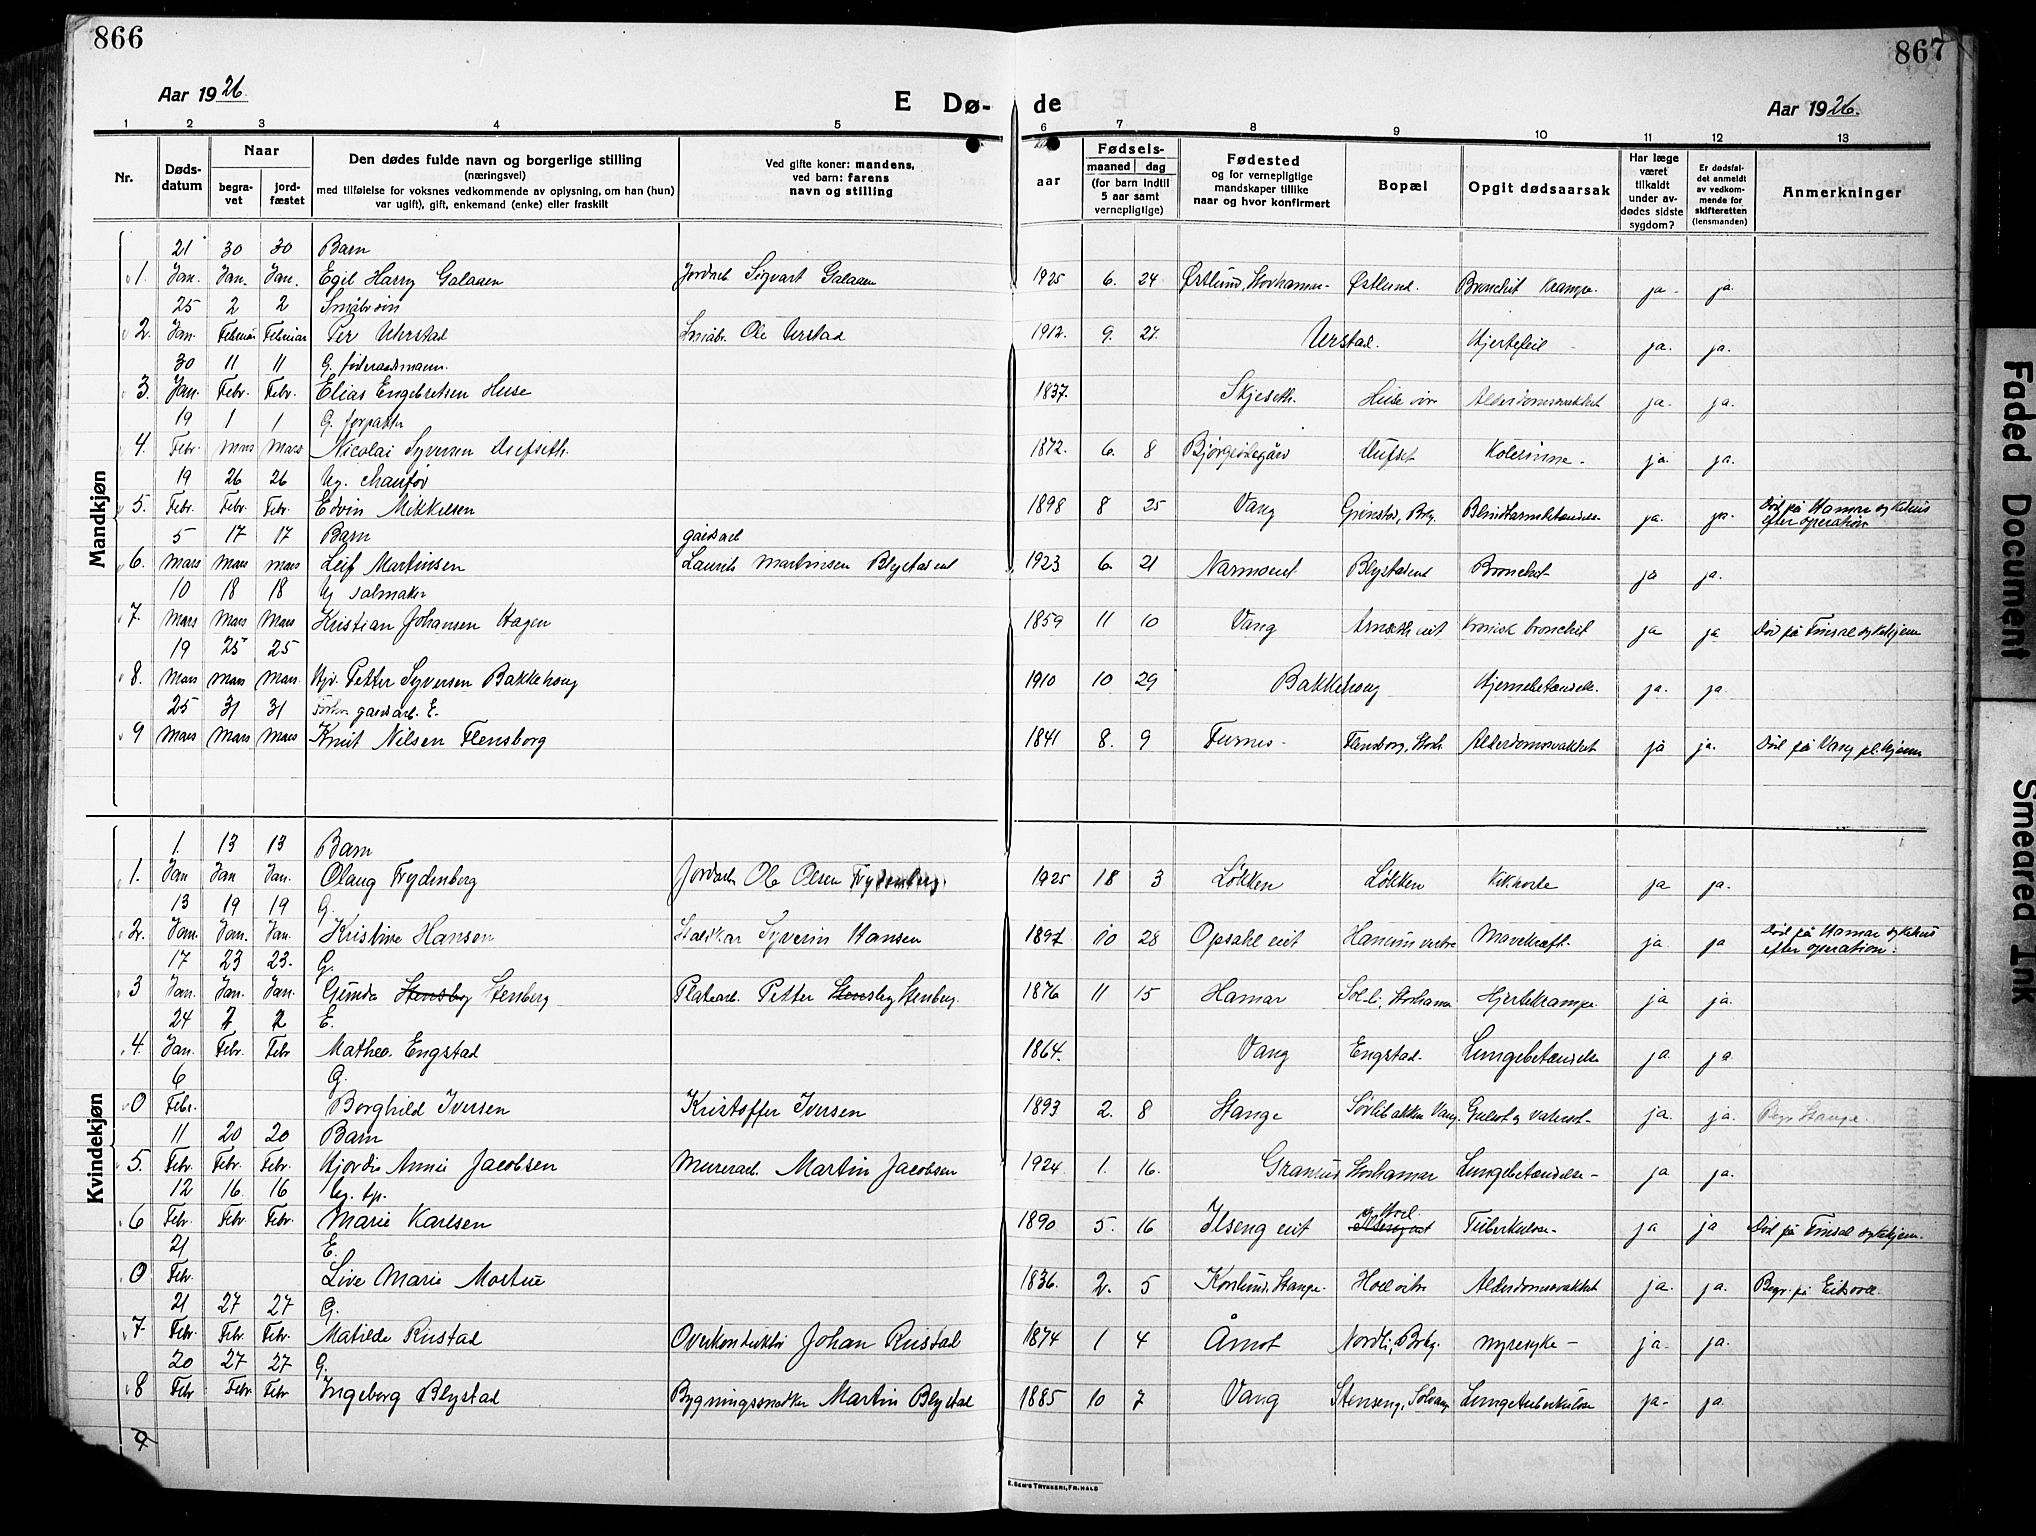 866
867
Aar 1926.
E Dø-
de
Aar 1926.
1 2 3 4 5 6 7 8 9 10 11 12 13
Nr.
Døds-
datum
Naar
begra-
vet
jord-
fæstet
Den dødes fulde navn og borgerlige stilling
(næringsvei)
med tilføielse for voksnes vedkommende av oplysning, om han (hun)
var ugift), gift, enkemand (enke) eller fraskilt
Ved gifte koner: mandens,
ved barn: farens
navn og stilling
Fødsels-
aar
maaned dag
(for barn indtil
5 aar samt
vernepligtige)
Fødested
og for vernepligtige
mandskaper tillike
naar og hvor konfirmert
Bopæl
Opgit dødsaarsak
Har læge
været
tilkaldt
under av-
dødes sidste
sygdom?
Er dødsfal-
det anmeldt
av vedkom-
mende for
skifteretten
(lensmanden)
Anmerkninger
Mandkjøn
21 30 30 Barn
1. Jan. Jan. Jan. Egil Harry Galaaen Jordarb. Sigvart Galaaen 1925 6. 24 Østlund, Storhamar- Østlund. Bronchit krampe. ja- ja.
25 2 2 Småbr.sön
2. Jan. Februar Februar Per Uhrstad Småbr. Ole Urstad 1912. 9. 27. Urstad. Hjertefeil - ja. ja.
30 11 11 G. föderaadsmann.
3. Jan. Febr. Febr. Elias Engebretsen Huse 1837. Skjeseth. Huse Alderdomssvakhet ja. ja.
19 1 1 G. forpakter
4. Febr. Mars Mars Nicolai Syversen 1872. 6. 8 ja. ja.
19 26 26 Ug. chaufför
5. Febr. Febr. Febr. Edvin Mikkelsen 1898 8 25 Vang Grimstad, Brby. Blindtarmsbetændelse ja. ja. Död på Hamar sykehus
efter operation
5 17 17 Barn gårdsarb.
6. Mars Mars Mars Leif Martinsen Laurits Martinsen Blystadeiet 1923 6. 21 Narmoeiet Blystadeiet Bronchit- ja ja.
10 18 18 Ug salmaker
7. Mars Mars Mars Kristian Johansen Hagen 1859 11 10 Vang Arneseth eiet kronisk bronchit ja ja Död på Finsal sykehjem
19 25 25
8. Mars Mars Mars. Petter Syversen Bakkehaug 1910 10 29 Bakkehaug Hjernebetændelse. ja. ja.
25 31 31 gårdsarb. E.
9 Mars Mars Mars Knut Nilsen Flensborg 1841 8. 9 Furnes- Flensborg, Storh. Alderdomssvakhet ja ja. Död på Vang pl.hjem
Kvindekjøn
1. 13 13 Barn
1. Jan Jan Jan. Olaug Frydenberg Jordarb. Ole Olsen Frydenberg. 1925 18 3 Løkken Løkken Kikhoste ja ja.
13 19 19 G.
2. Jan. Jan. Jan. Kristine Hansen Syverin Hansen 1897 10 28 Opsahl eiet Hanum vestre Mavekræft. ja. ja Död på Hamar sykehus
efter operation.
17 23 23. G.
3 Jan. Jan. Jan. Gunda Stensby Stenberg Platearb. Petter Stensby Stenberg. 1876 11 15 Hamar Solli, Storhamar Hjertekrampe ja ja.
24 2 2 E.
4. Jan. Febr. Febr Mathea Engstad 1864. Vang Engstad. Lungebetændelse ja. ja.
6 G.
0 Febr. Borghild Iversen Kristoffer Iversen 1893 2. 8 Stange Sorlibakken Vang. Gulsot og vatersot- ja. ja. Begr. Stange.
11 20 20 Barn
5. Febr. Febr. Febr. Hjördis Annie Jacobsen Murerarb. Martin Jacobsen 1924. 1. 16. Granlund Storhamar Lungebetændelse- ja ja.
12 16. 16 Ug. tp.
6 Febr. Febr Febr. Marie Karlsen 1890 5. 16 Ilseng eiet Ilseng eiet Tuberkulose- ja ja Död på Finsal sykehjem.
21 E.
0 Febr. Live Marie Mostue 1836. 2. 5 Korslund, Stange. Hoel östre Alderdomssvakhet ja. ja. Begr. på Eidsvoll.
21 27 27 G.
7. Febr. Febr. Febr. Matilde Rustad Overkonduktör Johan Rustad 1874 1 4 Åmot Nordli, Brby. nyresyke- ja- ja.
20 27 27 G.
8 Febr Febr Febr Ingeborg Blystad Bygningssnekker Martin Blystad 1885 10 7 Vang Stenseng, Solvang Lungetuberkulose ja- ja.
9
E. SEM'S TRYKKERI, FR.HALD
Faded Document
Smeared Ink